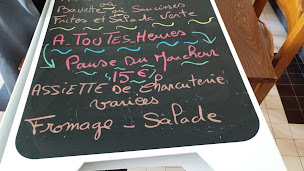 Bavette ou Saucisses
Frites et Salade Verte
A-TouTes Heures
Pause Du Marcheur
15€
ASSIETTE DE Charcuterie
variées
Fromage - Salade